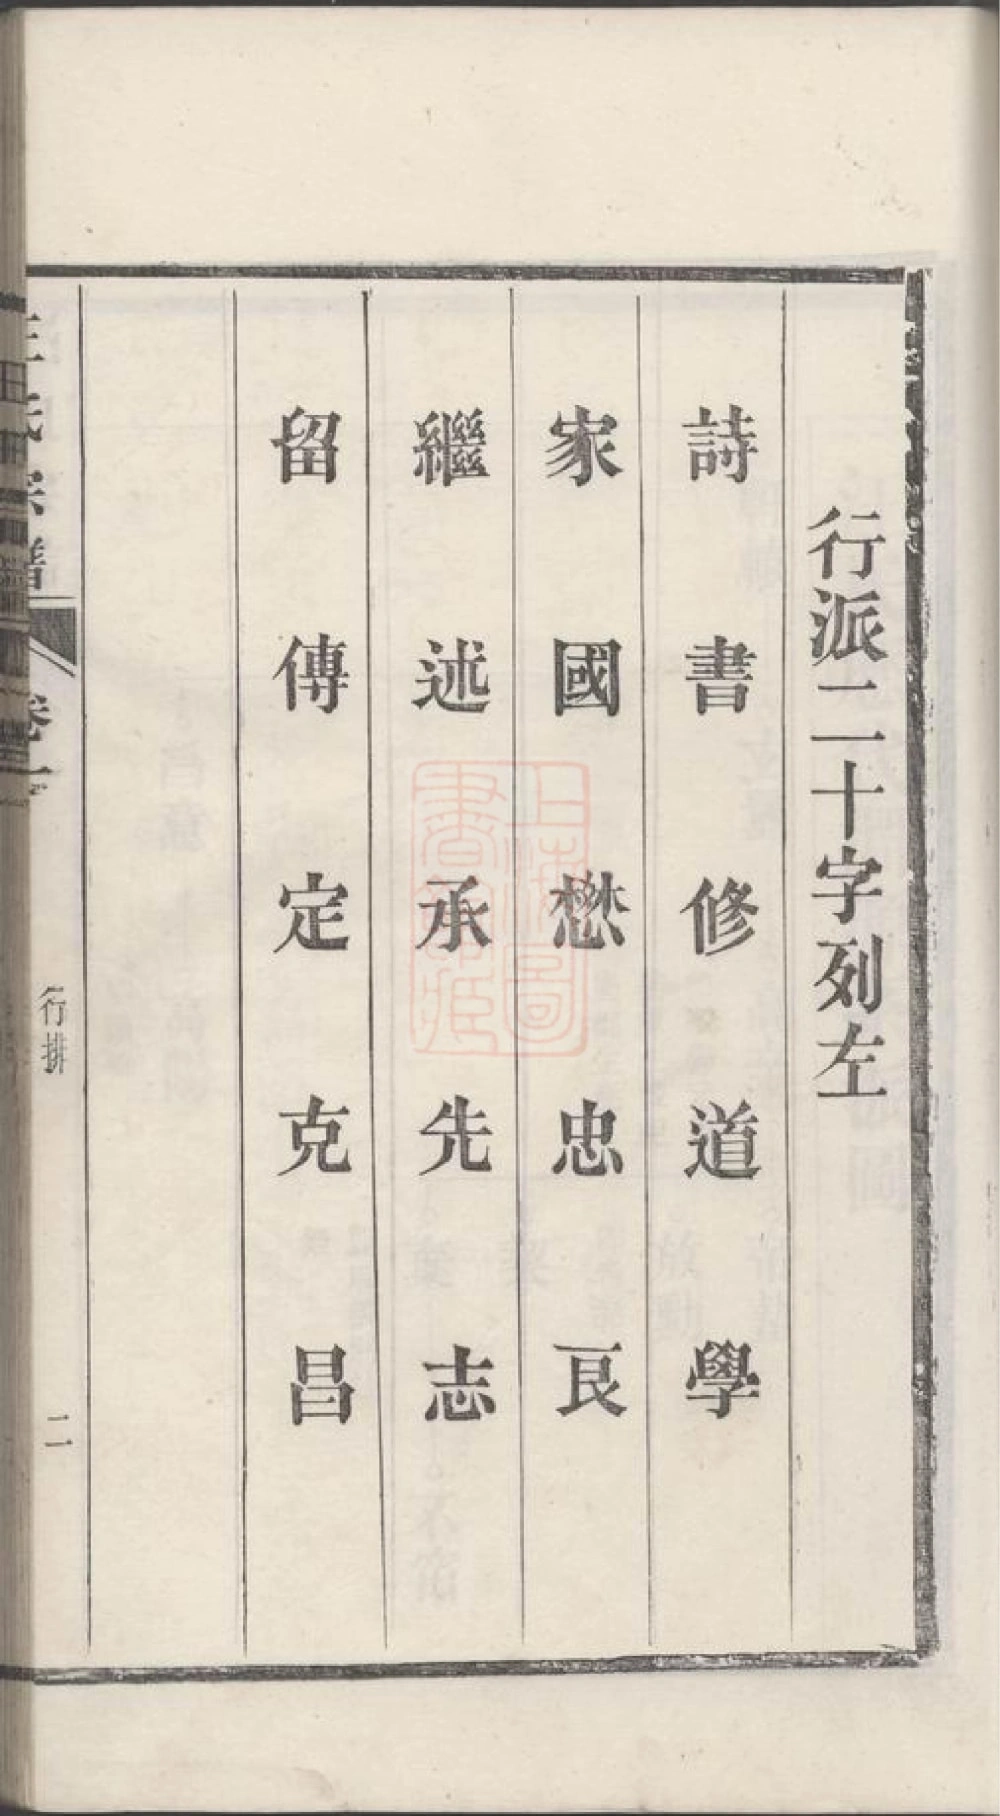 行派二十字列左
詩書修道學
家國懋忠良
繼述承先志
留傳定克昌
王氏宗譜
卷一
行排
二
上海圖書館藏